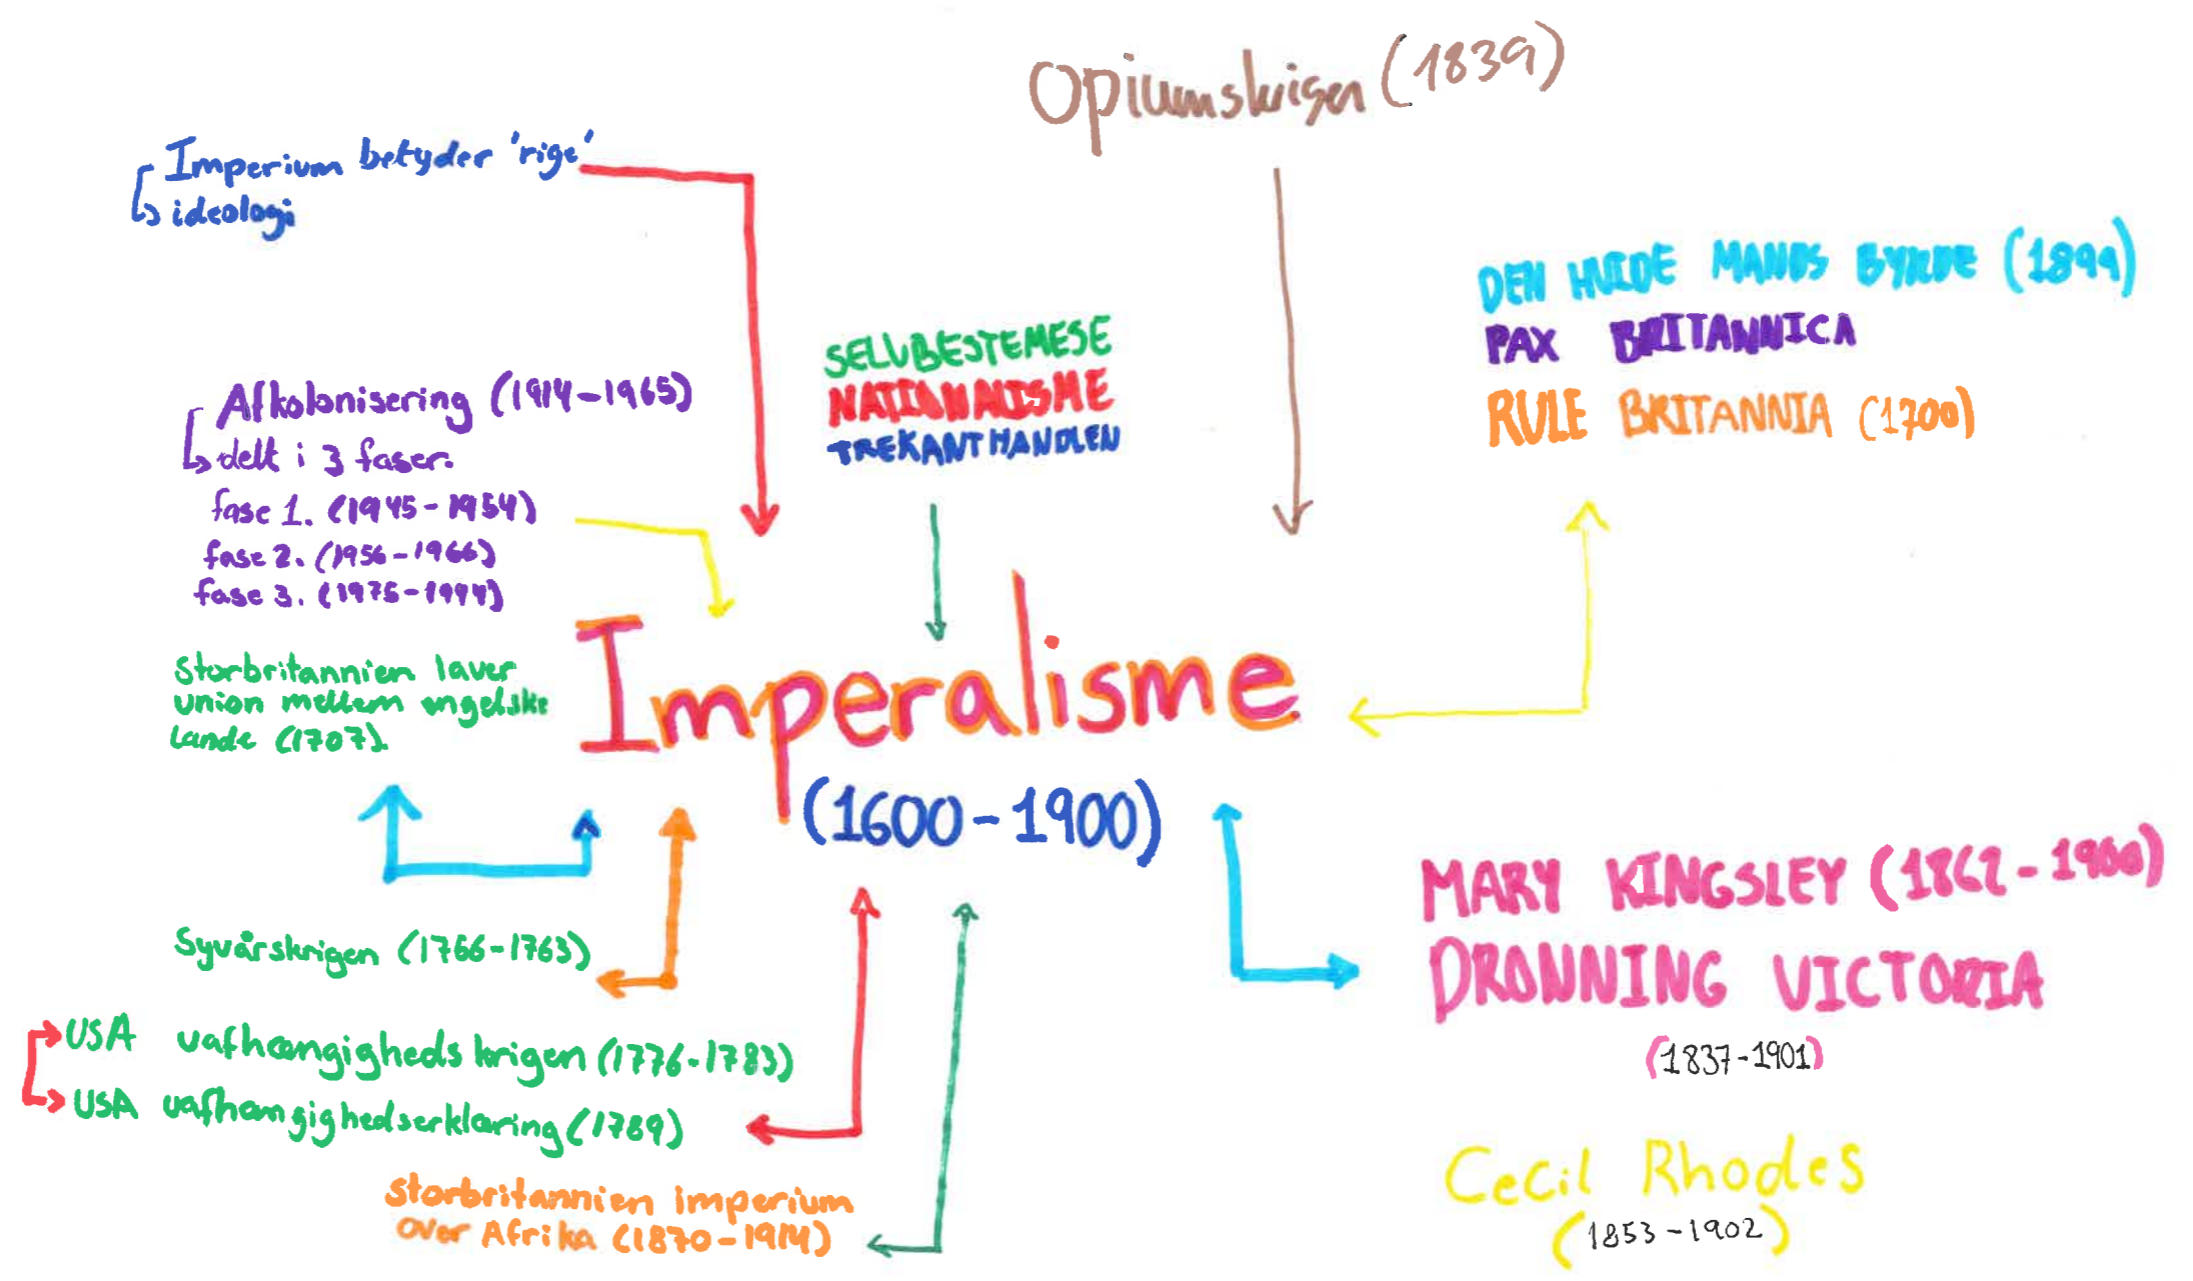 Opiumskrigen (1839)
Imperium betyder 'rige'
ideologi
DEN HVIDE MANDS BYRDE (1899)
PAX BRITANNICA
RULE BRITANNIA (1700)
SELVBESTEMESE
NATIONALISME
TREKANTHANDLEN
Afkolonisering (1914-1965)
delt i 3 faser.
fase 1. (1945-1954)
fase 2. (1956-1966)
fase 3. (1975-1994)
Storbritannien laver
union mellem engelske
lande (1707).
Imperalisme
(1600-1900)
MARY KINGSLEY (1862-1900)
DRONNING VICTORIA
(1837-1901)
Syvårskrigen (1756-1763)
USA uafhængigheds krigen (1776-1783)
USA uafhængighedserklæring (1789)
Storbritannien imperium
over Afrika (1870-1914)
Cecil Rhodes
(1853-1902)